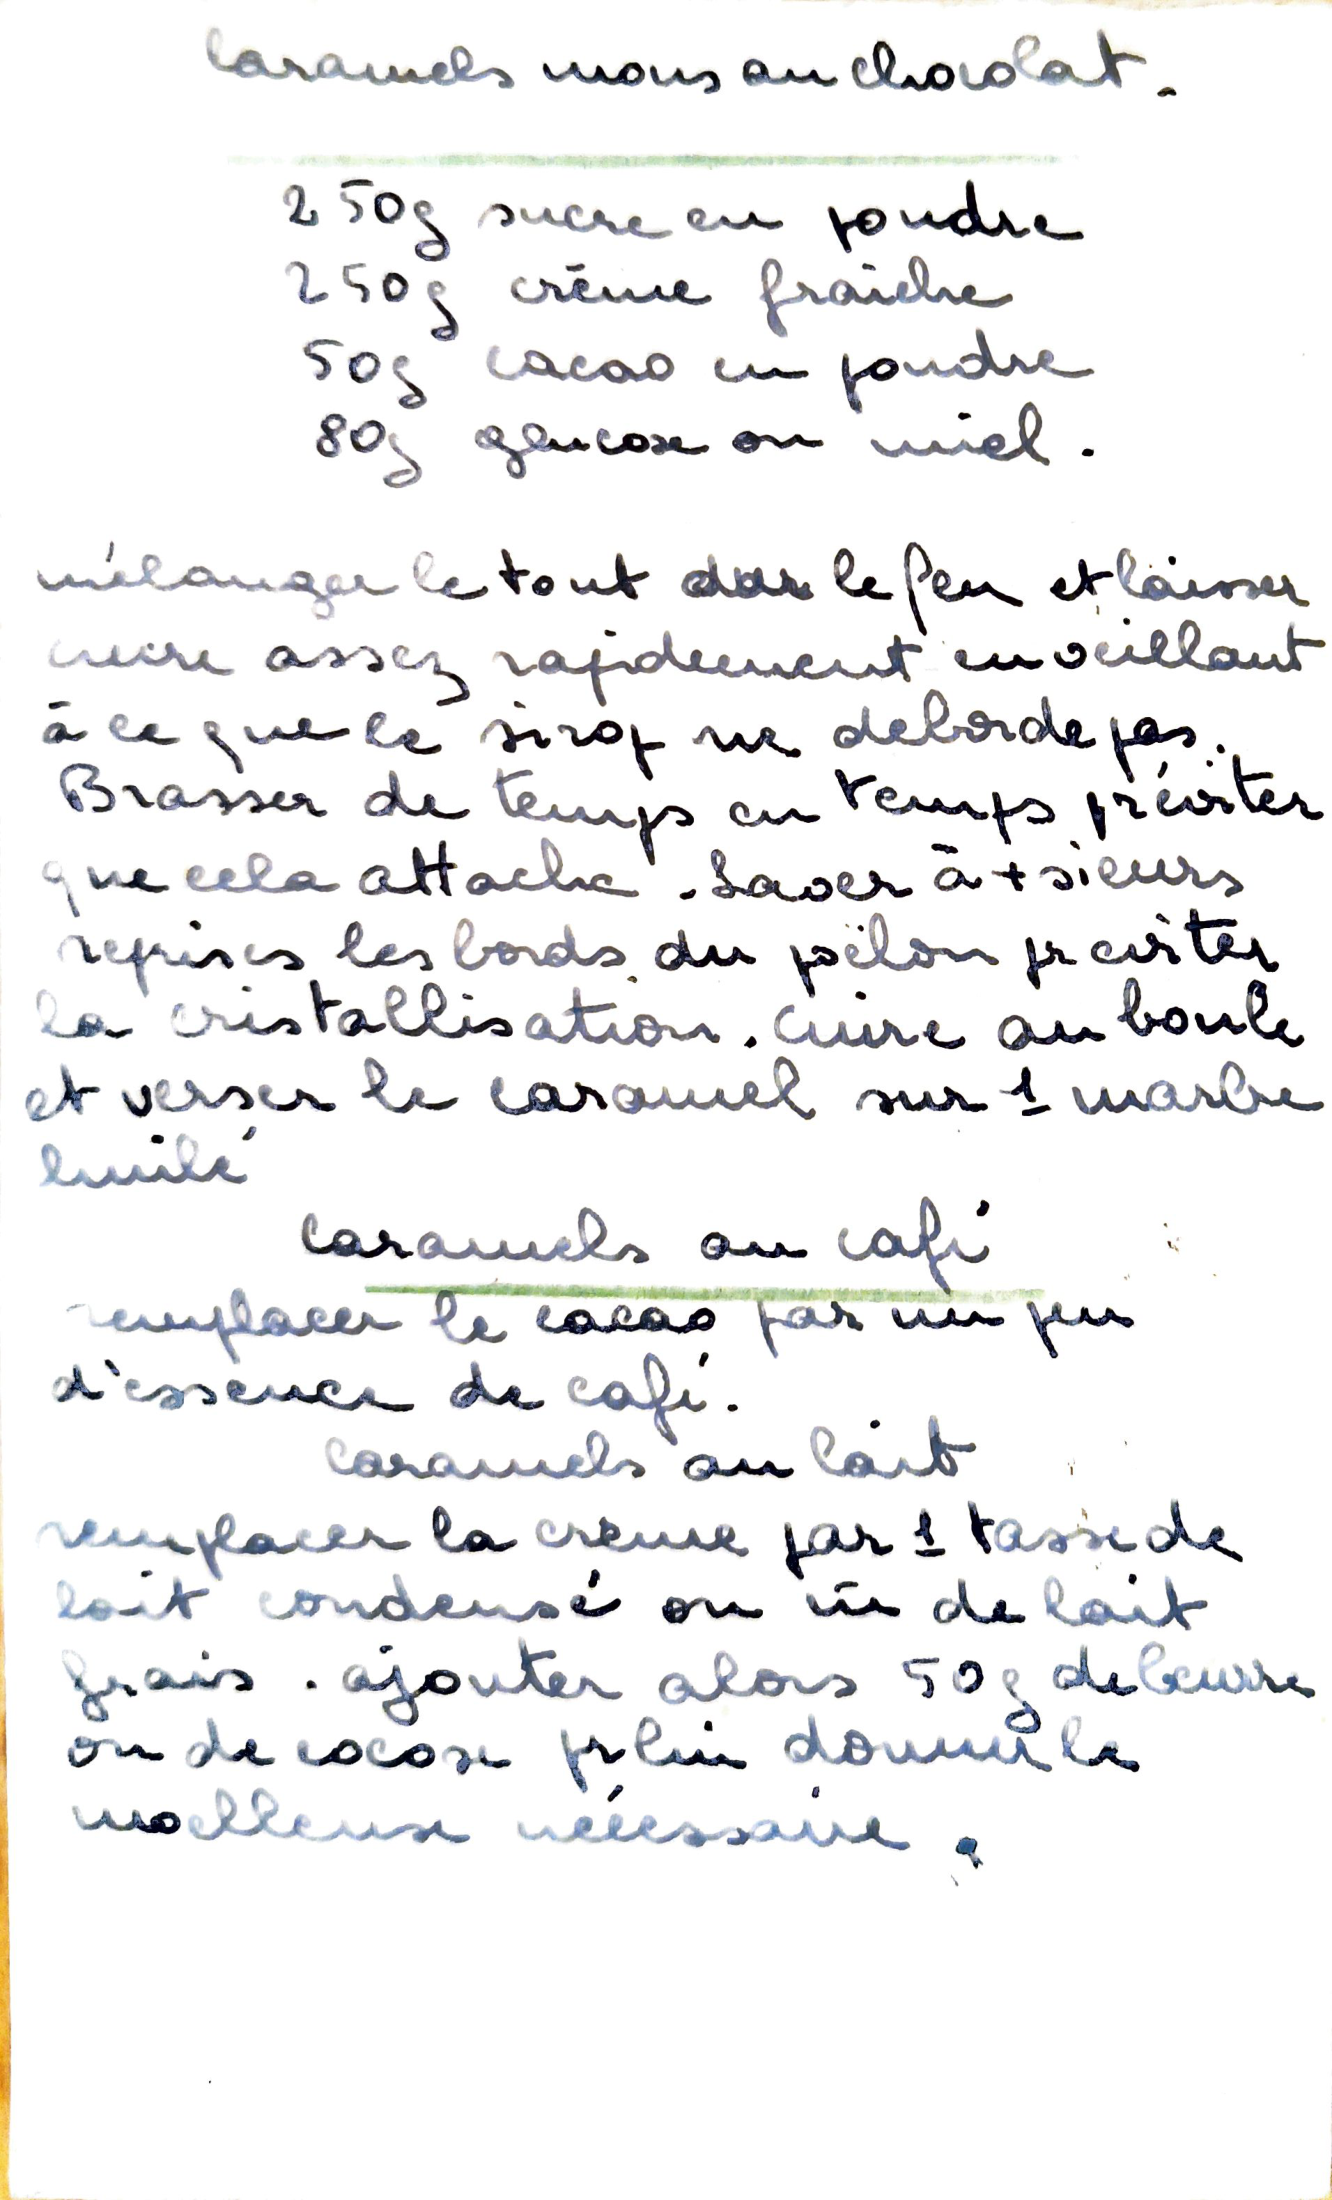 Caramels mous au chocolat.
250g sucre en poudre
250g crème fraîche
50g cacao en poudre
80g glucose ou miel.
mélanger le tout le feu et laisser
cuire assez rapidement en veillant
à ce que le sirop ne deborde pas.
Brasser de temps en temps pr éviter
que cela attache. Laver à +sieurs
reprises les bords du poêlon pr eviter
la cristallisation. Cuire au boulé
et verser le caramel sur 1 marbre
huilé
Caramels au café
remplacer le cacao par un peu
d'essence de café.
Caramels au lait
remplacer la crème par 1 tasse de
lait condensé ou de lait
frais. ajouter alors 50g de beurre
ou de cocose pr lui donner le
moelleuse nécessaire.